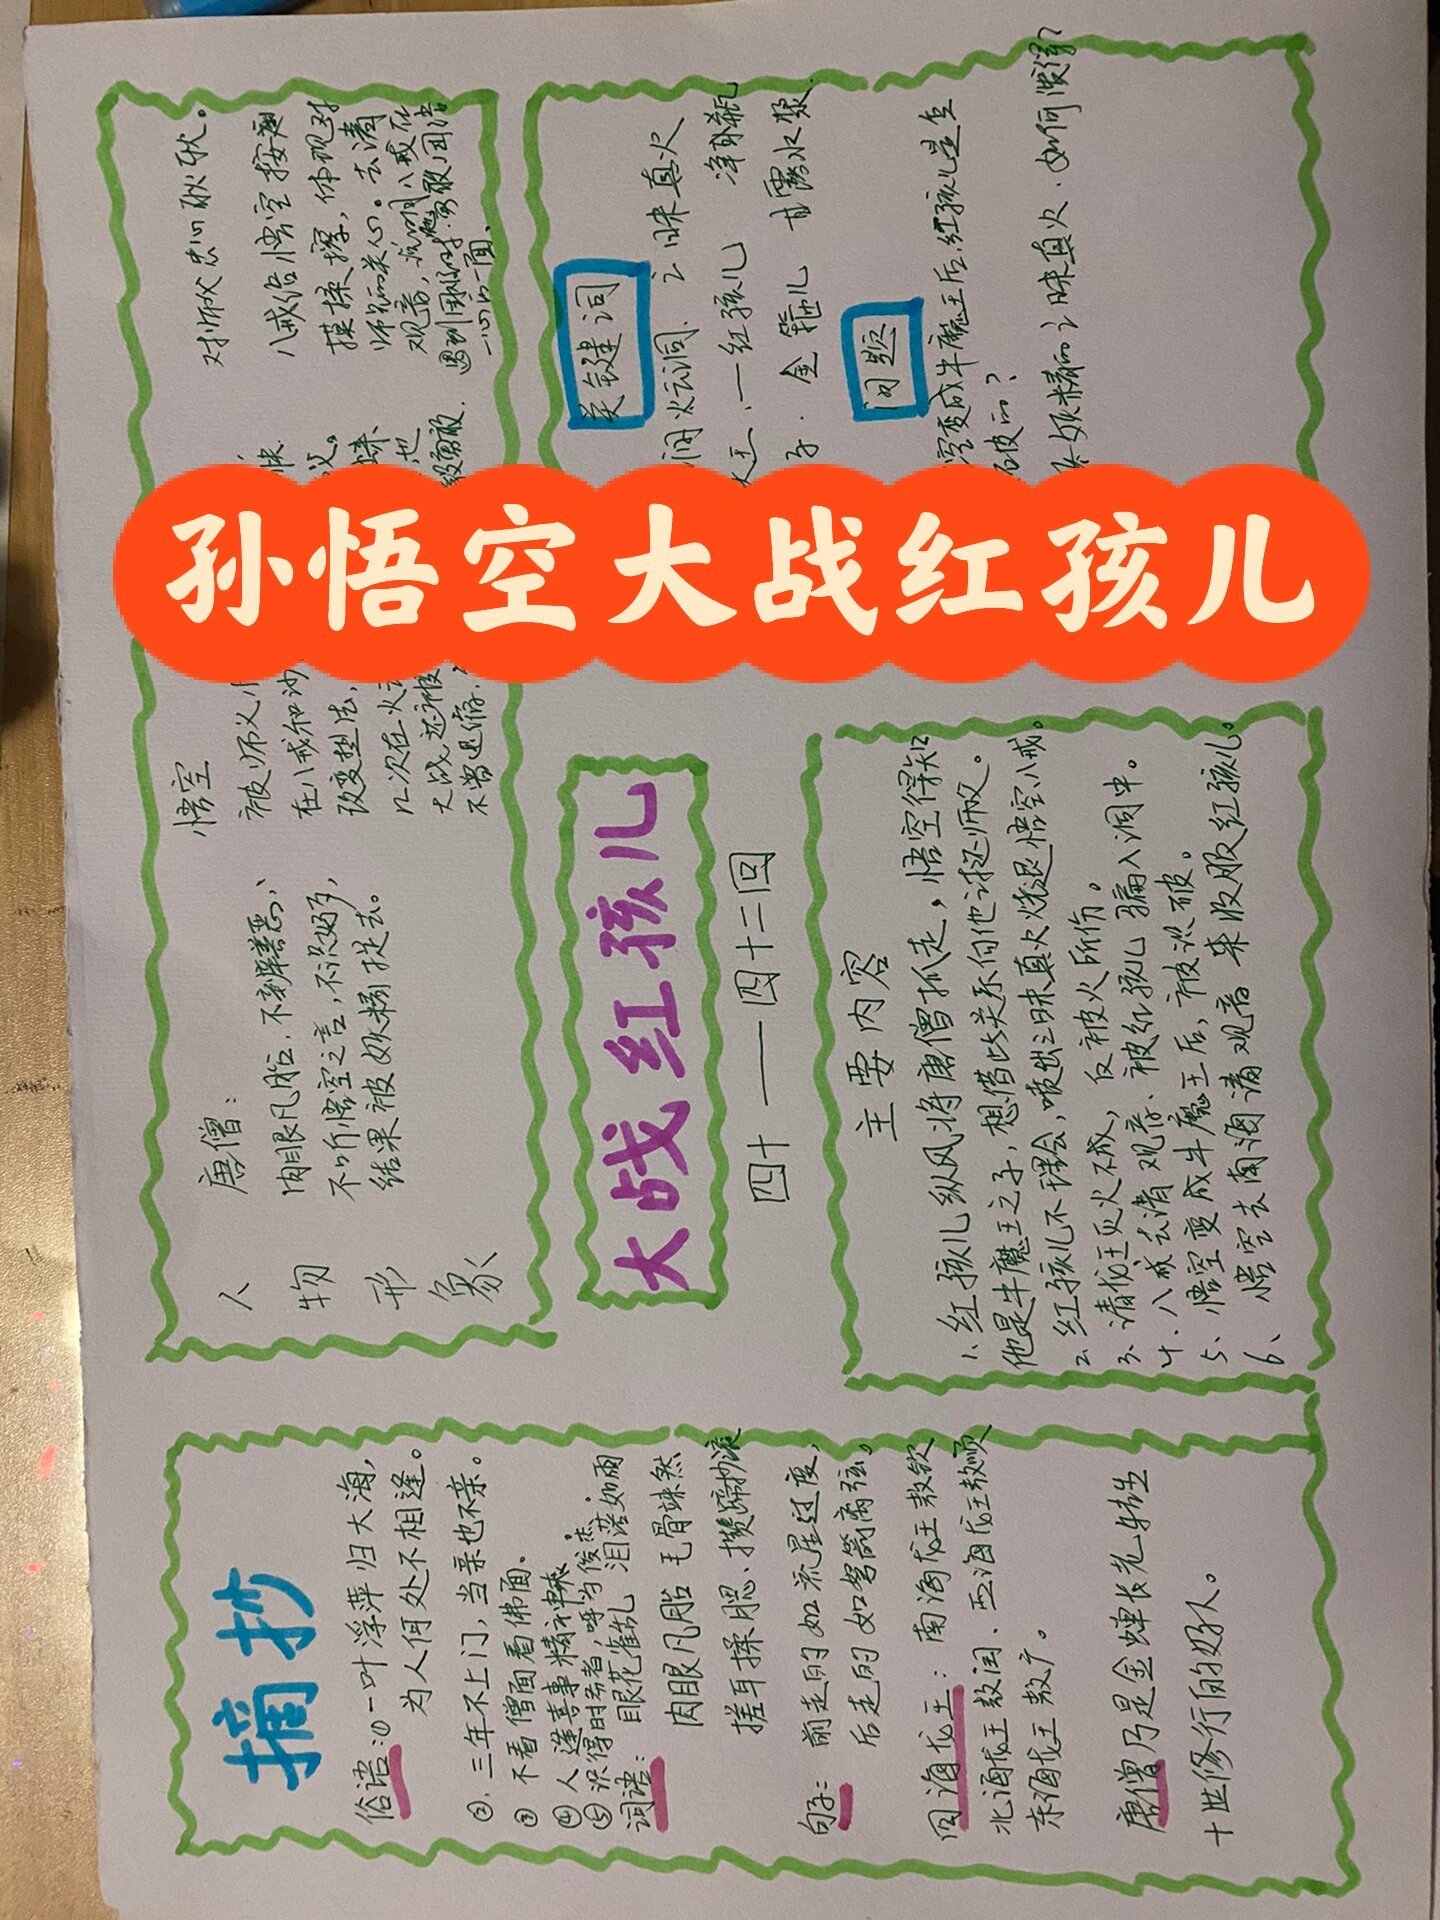 孙悟空大战红孩儿
摘抄
俗语:①一叶浮萍归大海,
为人何处不相逢。
②.三年不上门,当亲也不亲。
③不看僧面看佛面.
④人逢喜事精神爽
⑤识得时务者,呼为俊杰.
词语:眼花雀乱 泪落如雨
肉眼凡胎 毛骨竦然
搓耳揉腮、攒蹄抄滚
句子:前走的如流星过度,
后走的如弩箭离弦。
四海龙王:南海龙王敖钦
北海龙王敖闰、西海龙王敖顺
东海龙王敖广。
唐僧乃是金蝉长老转生
十世修行的好人。
人物形象
唐僧:
肉眼凡胎.不辨善恶、
不听悟空之言,不识好歹,
结果被妖精捉去。
悟空
被师父
在八戒和沙
改变想法,
几次在火
大战还被
不曾退缩.
对师父忠心耿耿。
八戒给悟空按
摸揉擦,体现对
师兄的关心。去请
观音,说明八戒在
遇到困难时勇敢
一心的一面.
大战红孩儿
四十——四十二回
主要内容
1.红孩儿纵风将唐僧抓走,悟空得知
他是牛魔王之子,想借此关系向他讨还师父。
2.红孩儿不理会,喷出三昧真火烧退悟空八戒.
3.请龙王灭火不成,反被火所伤。
4.八戒去请观音、被红孩儿骗入洞中。
5、悟空变成牛魔王后,被识破。
6、悟空去南海请观音来收服红孩儿。
关键词
涧火云洞.三昧真火
大王.一红孩儿 净瓶
子.金箍儿 甘露水浆
问题
空变成牛魔王后.红孩儿是怎
破的?
妖精的三昧真火.如何